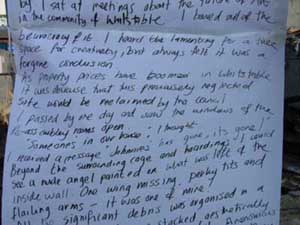 by, I sat at meetings about the future of
in the community of Whitstable I loved all of the
beurocracy of it I heard the lamenting for a free
space for creativity, but always felt it was a
forgone conclusion
As property prices have boomed in Whitstable
it was obvious that this previously neglected
Site would be reclaimed by the council
I passed by one day and saw the windows of the
open. I thought,
Someones in our house.
I received a message 'Johnnies has gone, its gone!'
Beyond the surrounding cage and hoarding, I could
see a nude angel painted on what was left of the
inside wall. One wing missing, perky tits and
flailing arms - It was one of mine!
All the significant debris was organised in a
stacked, aesthetically